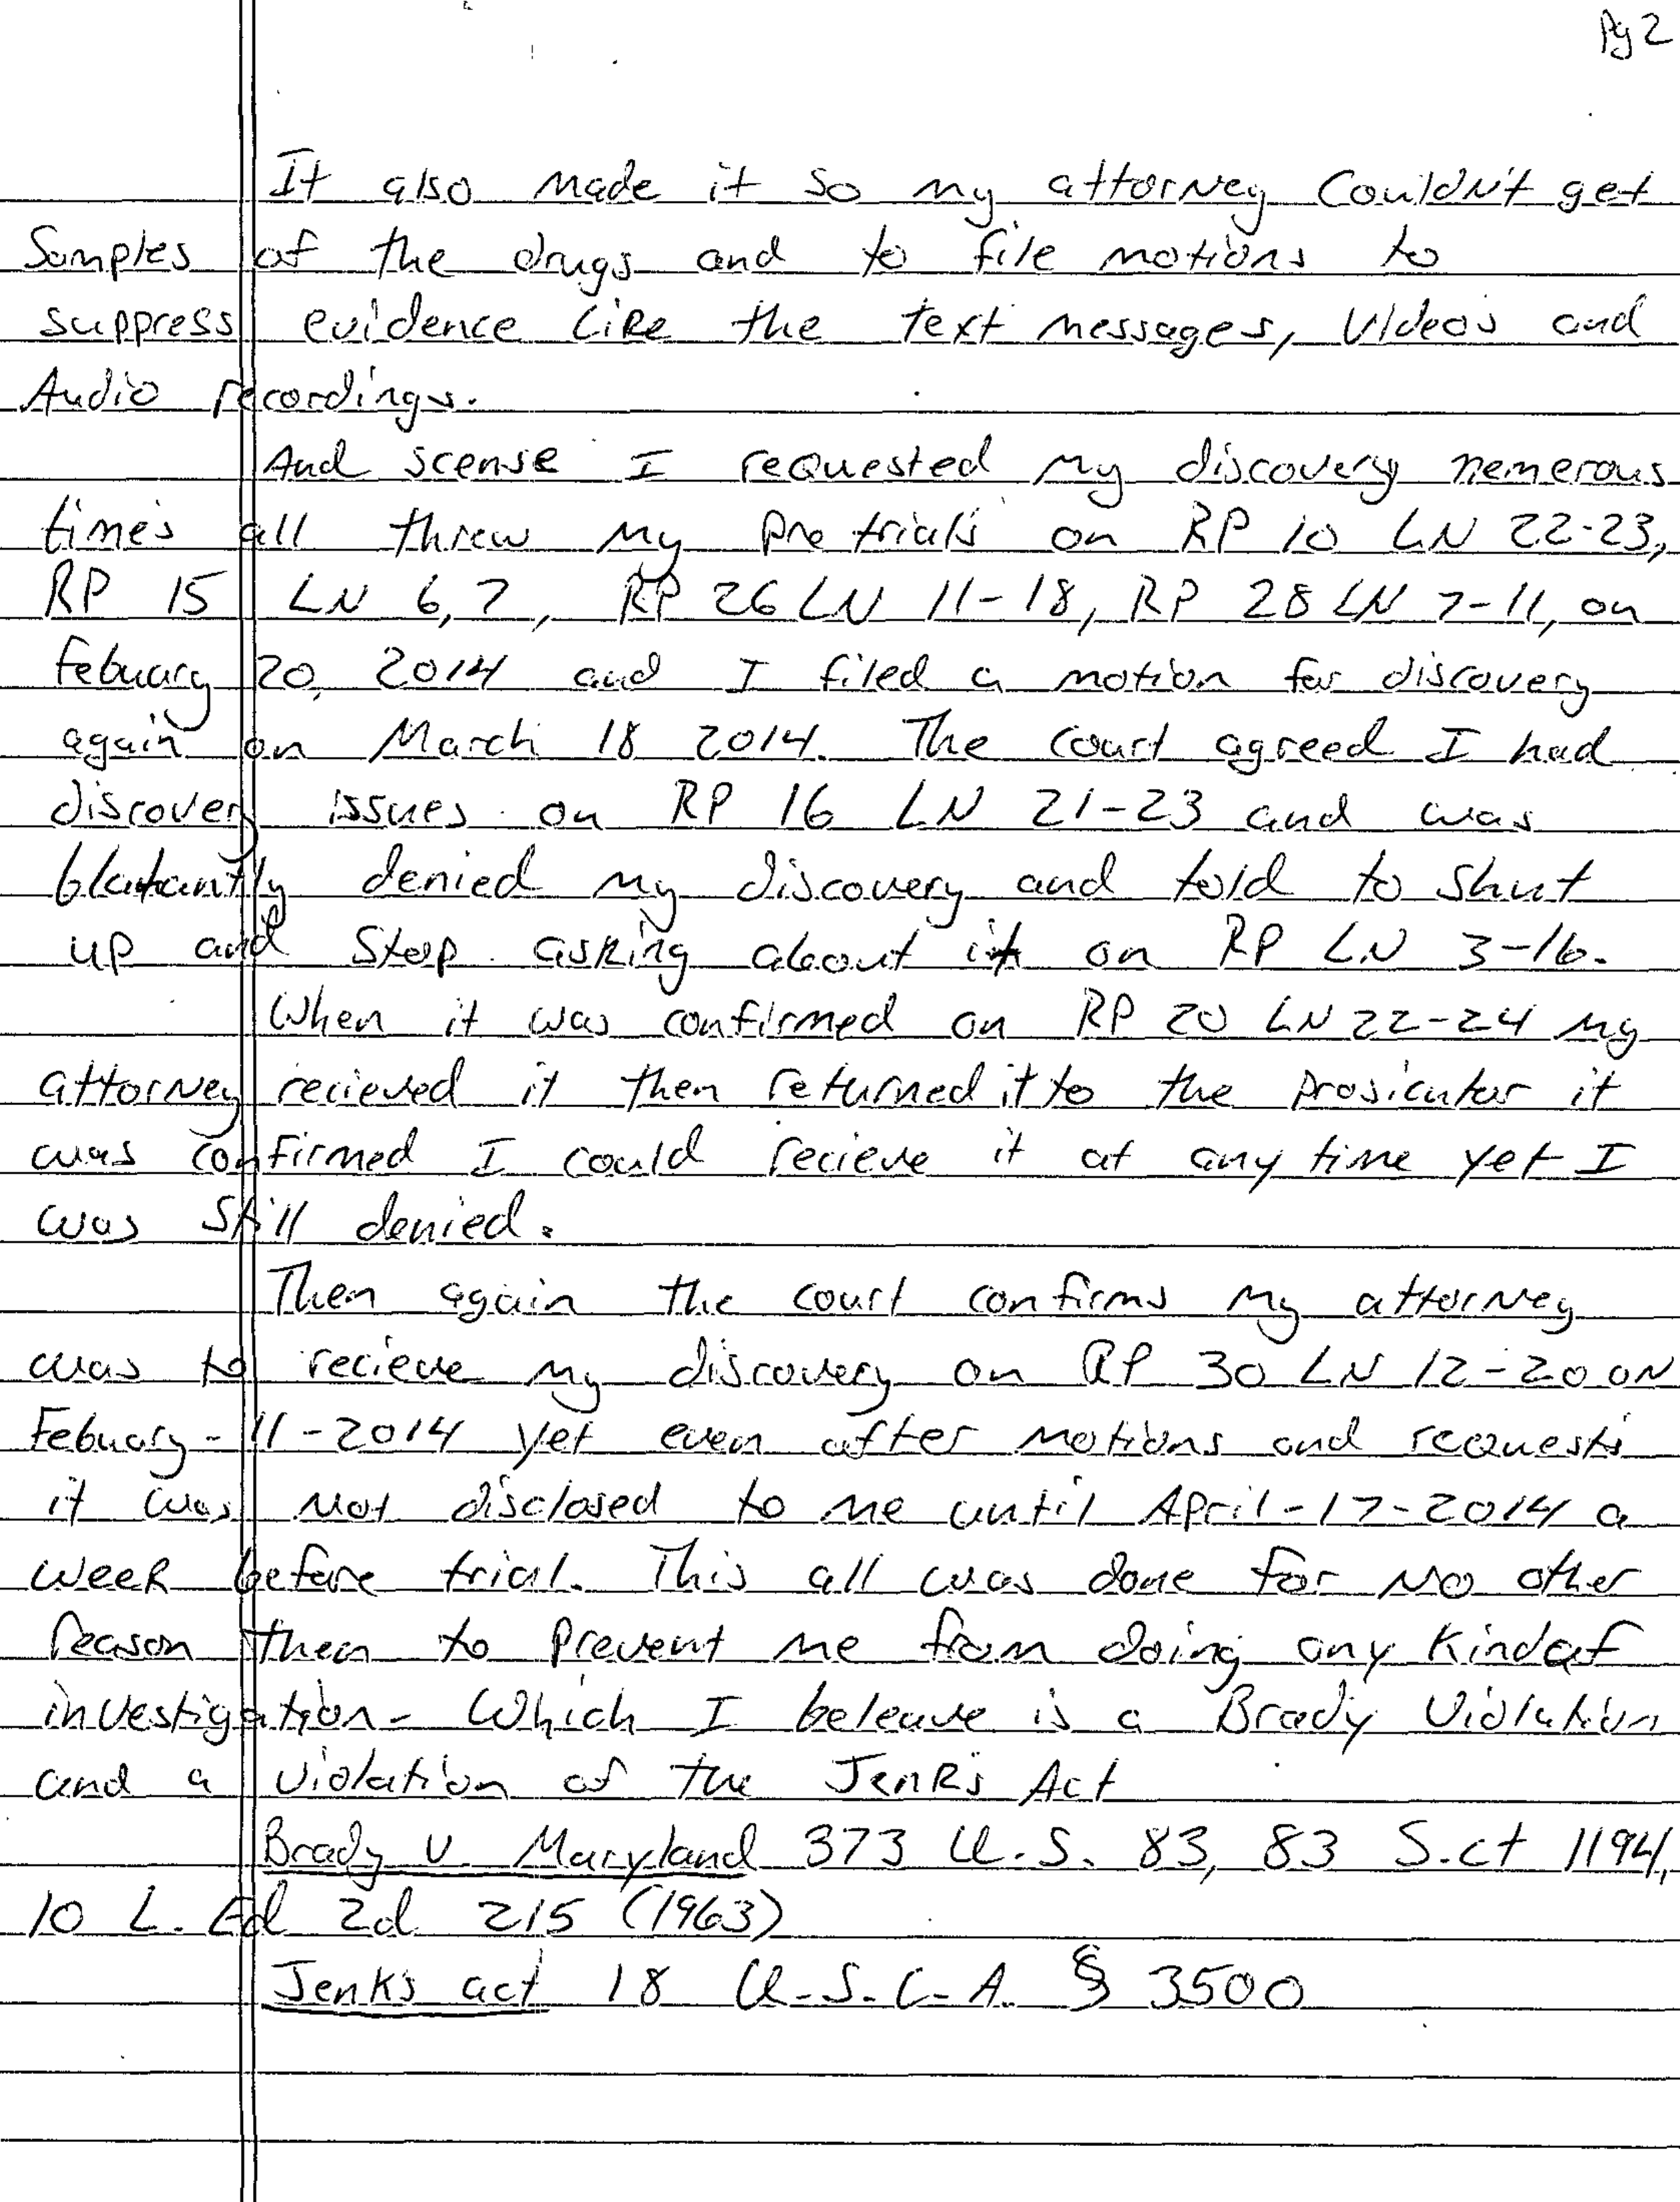 Pg 2
It also made it so my attorney couldn't get
Samples of the drugs and to file motions to
suppress evidence like the text messages, Videos and
Audio recordings.
And scense I requested my discovery nemerous
times all threw my pre trials on RP 10 LN 22-23,
RP 15 LN 6,7, RP 26 LN 11-18, RP 28 LN 7-11, on
Febuary 20, 2014 and I filed a motion for discovery
again on March 18 2014. The court agreed I had
discovery issues on RP 16 LN 21-23 and was
blatantly denied my discovery and told to shut
up and stop asking about it on RP LN 3-16.
When it was confirmed on RP 20 LN 22-24 my
attorney recieved it then returned it to the prosicutor it
was confirmed I could recieve it at any time yet I
was still denied.
Then again the court confirms my attorney
was to recieve my discovery on RP 30 LN 12-20 on
Febuary-11-2014 yet even after motions and requests
it was not disclosed to me until April-17-2014 a
week before trial. This all was done for no other
reason then to prevent me from doing any kind of
investigation- Which I beleave is a Brady Violation
and a violation of the Jenks Act
Brady v. Maryland 373 U.S. 83, 83 S.ct 1194,
10 L. Ed 2d 215 (1963)
Jenks act 18 U.S.C.A. § 3500